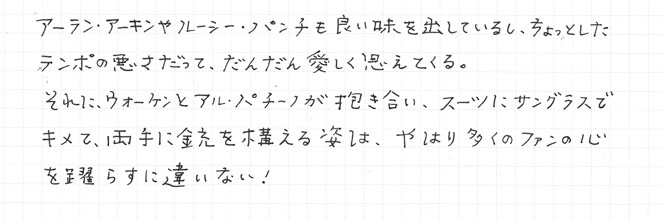 アーラン・アーキンやルーシー・パンチも良い味を出しているし、ちょっとした
テンポの悪さだって、だんだん愛しく思えてくる。
それに、ウォーケンとアル・パチーノが抱き合い、スーツにサングラスで
キメて、両手に銃を構える姿は、やはり多くのファンの心
を躍らすに違いない!